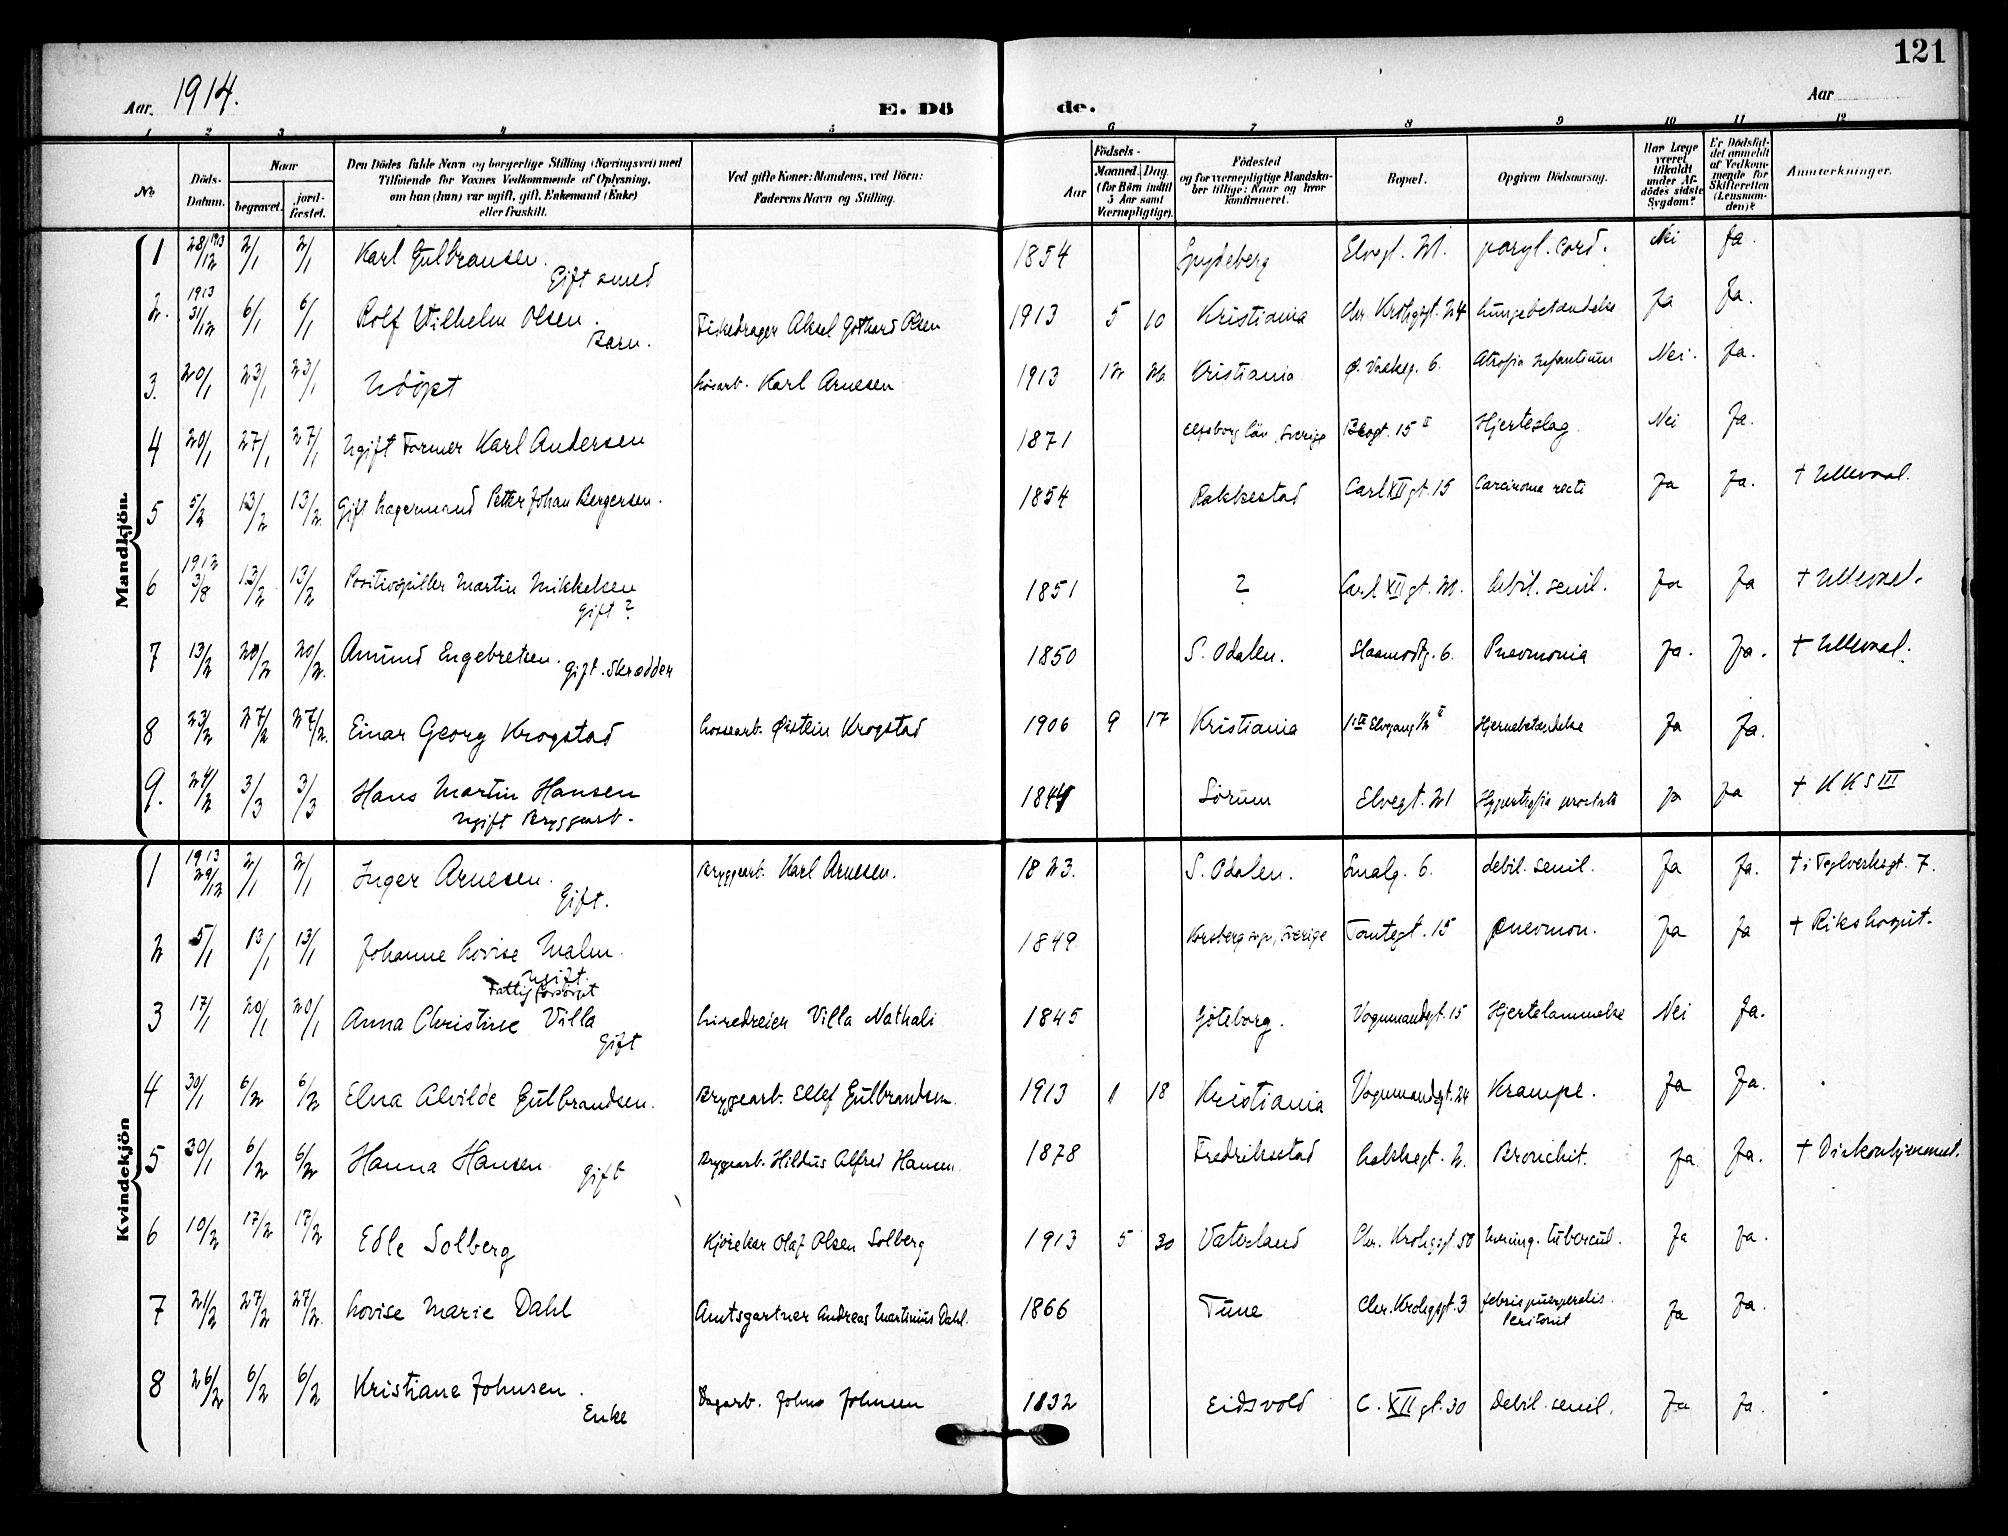 121
Aar 1914.
E. Dö
de.
Aar
1 2 3 4 5 6 7 8 9 10 11 12
No
Döds-Datum.
Naar
begravet.
jord-fæstet.
Den Dödes fulde Navn og borgerlige Stilling (Næringsvei) med
Tilföiende for Voxnes Vedkommende af Oplysning,
om hun (han) var ugift, gift, Enkemand (Enke)
eller fraskilt.
Ved gifte Koner: Mandens, ved Börn:
Faderens Navn og Stilling.
Födsels-
Aar
Maaned. Dag.
(for Börn indtil
5 Aar samt
Værnepligtige).
Födested
og for værnepligtige Mandskaber tillige: Naar og hvor
konfirmeret.
Bopæl.
Opgiven Dödsaarsag.
Har Læge
været
tilkaldt
under Afdödes sidste
Sygdom?
Er Dödsfaldet anmeldt
af Vedkommende for
Skifteretten
(Lensmanden)?
Anmærkninger.
Mandkjön.
1 28/12 1913 2/1 2/1 Karl Gulbransen. Gift smed 1854 Spydeberg Elvegt. 21. paryl. cord. Nei Ja.
2. 1913 31/12 6/1 6/1 Rolf Vilhelm Olsen. Barn. Fiskedrager Aksel Gothard Olsen 1913 5 10 Kristiania Chr. Krohgsgt. 24 Lungebetændelse Ja Ja.
3. 20/1 23/1 23/1 Udöpt Løsarb. Karl Arnesen 1913 12 26 Kristiania Ø. Vaskeg. 6. Atrofia infantium Nei. Ja.
4 20/1 27/1 27/1 Ugift Former Karl Andersen 1871 Elfsborg län, Sverige 15 II Hjerteslag. Nei Ja.
5 5/2 13/2 13/2. Gift Lagermand Petter Johan Bergersen. 1854 Rakkestad Carl XII gt. 15 Carcinoma recti Ja Ja. † Ullevaal.
6 1912 3/8 13/2 13/2 Positivspiller Martin Mikkelsen Gift? 1851 ? Carl XII gt. 21. Debil. senil. Ja Ja † Ullevaal.
7 13/2 20/2 20/2. Amund Engebretsen. Gift. Skrædder 1850 S. Odalen. 6. Pneomonia Ja. Ja. † Ullevaal.
8 23/2 27/2 27/2. Einar Georg Krogstad Lossearb. Øistein Krogstad 1906 9 17 Kristiania Hjernebetændelse Ja Ja.
9. 24/2 3/3 3/3 Hans Martin Hansen Ugift Bryggarb. 1844 Sörum Elvegt. 21 Hypertrofia prostata Ja Ja † K K S III
Kvindekjön
1 1913 29/12 2/1 2/1 Inger Arnesen. Gift. Bryggearb. Karl Arnesen. 1823. S. Odalen. Smalg. 6. debil. senil. Ja Ja. † i Teglverksgt. 7.
2 5/1 13/1 13/1 Johanne Lovise Malm. Ugift. Fattigforsörget 1849. Sverige Tomtegt. 15 pneomon. Ja Ja † Rikshospit.
3 17/1 20/1 20/1 Anna Christine Villa Gift Liredreier Villa Nathali 1845 Göteborg. Vognmandsgt. 15 Hjertelammelse Nei Ja.
4 30/1 6/2 6/2 Elna Alvilde Gulbrandsen. Bryggearb. Ellef Gulbrandsen. 1913 1 18 Kristiania Vognmandsgt. 24 Krampe. Ja Ja.
5 30/1 6/2 6/2 Hanna Hansen Gift Bryggearb. Hildus Alfred Hansen. 1878 Fredriksstad Lakkegt. 2. Bronchit. Ja Ja. † Diakonhjemmet.
6 10/2 17/2 17/2 Edle Solberg Kjörekar Olaf Olsen Solberg 1913 5 30 Vaterland Chr. Krohgsgt. 50 Mening. tubercul. Ja Ja.
7 21/2 27/2 27/2. Lovise Marie Dahl Amtsgartner Andreas Martinius Dahl. 1866 Tune Chr. Krohgsgt. 3 febris puerperalis. Peritonit Ja Ja.
8 26/2 6/2 6/2 Kristiane Johnsen. Enke Dagarb. Johns Johnsen 1832 Eidsvold C. XII gt. 30 Debil. senil. Ja Ja.